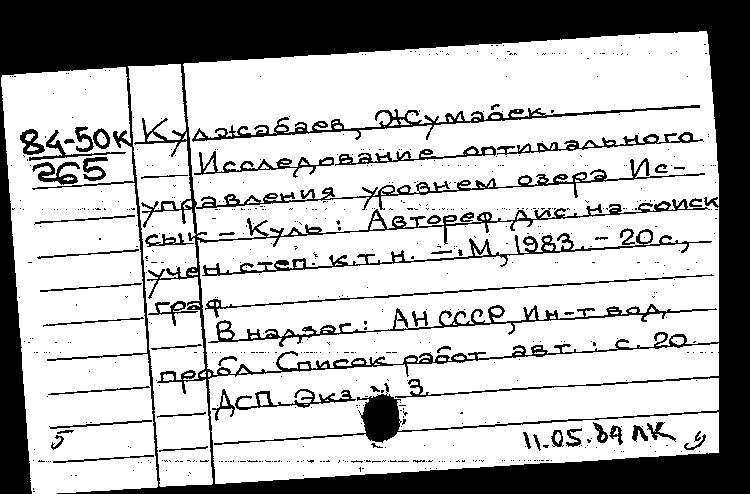 84-50К
265
Кулжабаев, Жумабек.
Исследование оптимального
управления уровнем озера Ис-
сык-Куль: Автореф. дис. на соиск
учен. степ. к.т.н. -: М., 1983. - 20 с.,
граф.
В надзаг.: АН СССР, Ин-т вод.
пробл. Список работ авт.: с. 20
ДСП. Экз. N 3.
5
11.05.84 ЛК